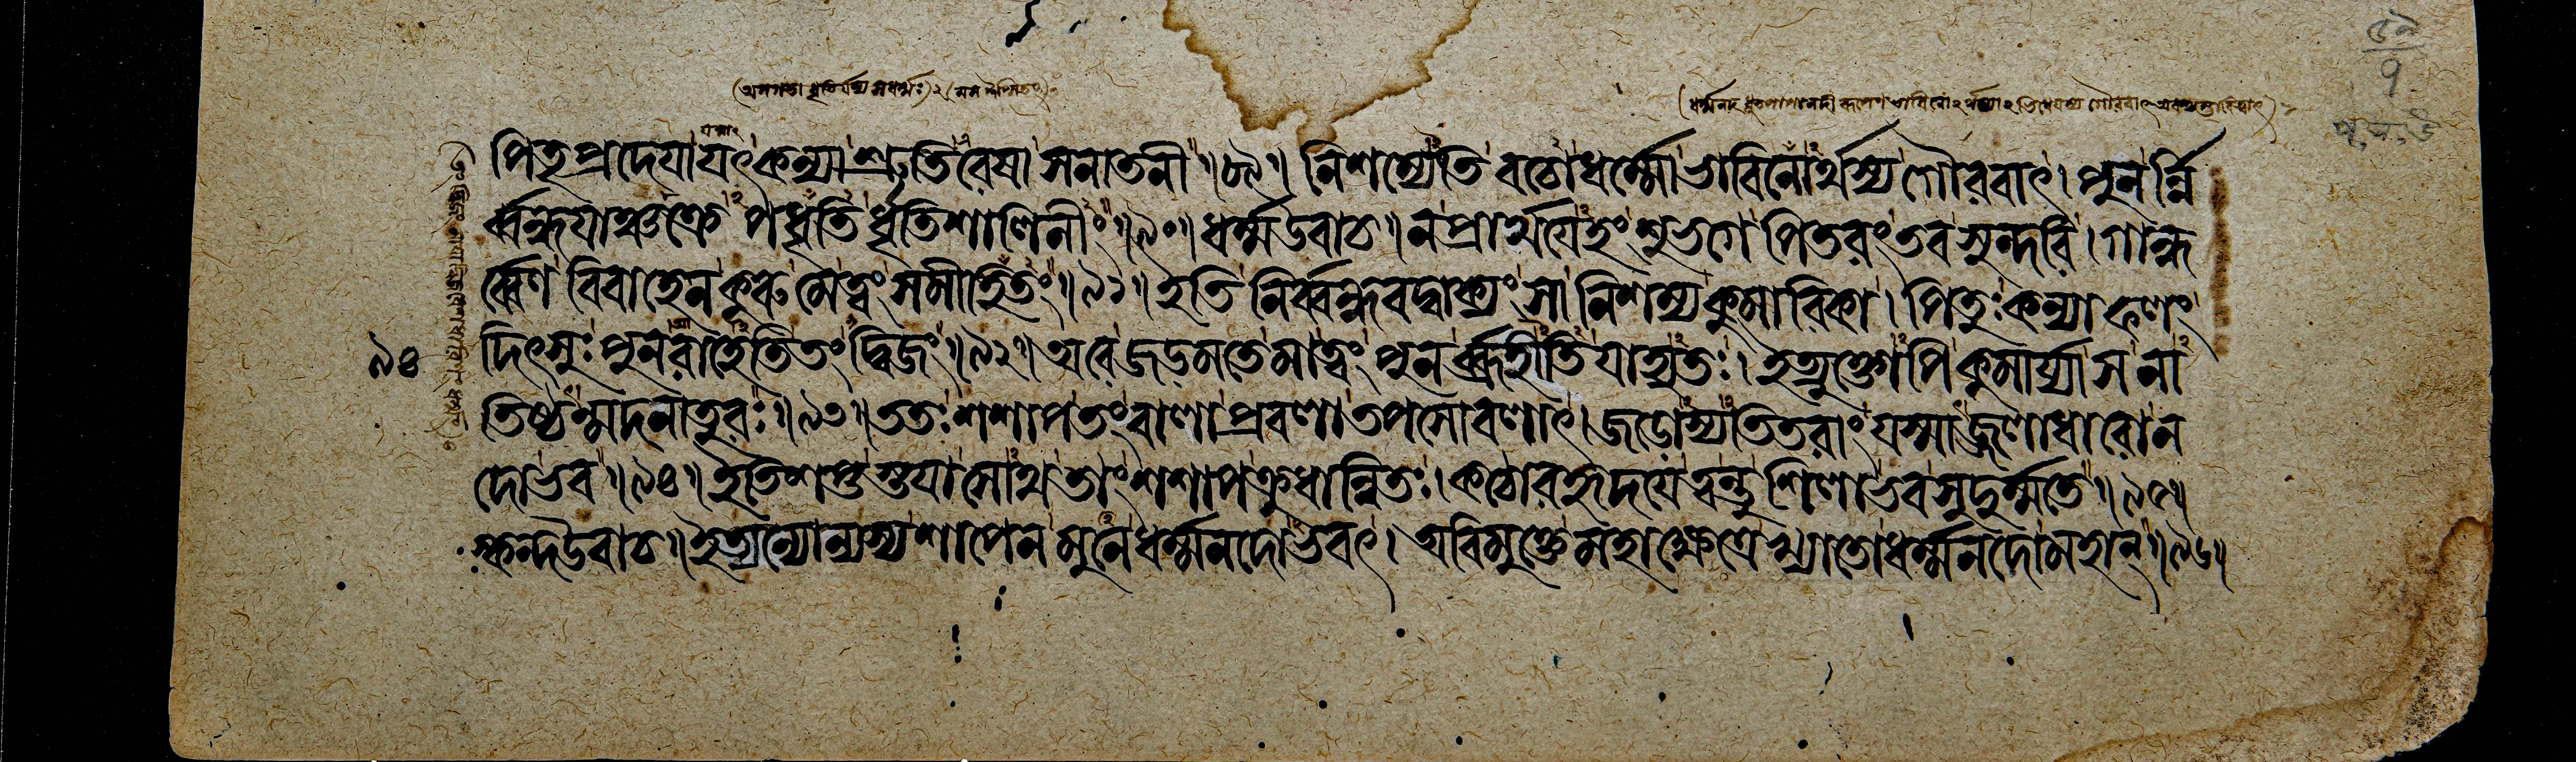 পিতৃপ্রদেয়া যৎ কন্যা শ্রুতিরেষা সনাতনী ॥ ৮৯ ॥ নিশম্যেতি বচো ধর্ম্মো ভাবিনোর্থস্য গৌরবাৎ । পুনর্ন্নি
র্ব্বন্ধয়াঞ্চক্রে পধৃতি র্ধৃতিশালিনীং ॥ ৯০ ॥ ধর্ম্ম উবাচ ॥ ন প্রার্থয়েহং সুভগে পিতরং তব সুন্দরি । গান্ধ
র্ব্বেণ বিবাহেন কুরু মে ত্বং সমীহিতং ॥ ৯১ ॥ ইতি নির্ব্বন্ধবদ্বাক্যং সা নিশম্য কুমারিকা । পিতুঃ কন্যাফলং
৯৪ দিৎসুঃ পুনরাহেতি তং দ্বিজং ॥ ৯২ ॥ অরে জড়মতে মাত্বং পুনর্ব্রূহীতি যাহ্যতঃ । ইত্যুক্তোপি কুমার্য্যা স না
তিষ্ঠন্মদনাতুরঃ ॥ ৯৩ ॥ ততঃ শশাপ তং বালা প্রবলা তপসোবলাৎ । জড়োস্যতিতরাং যস্মাজ্জলাধারো ন
দোভব ॥ ৯৪ ॥ ইতি শপ্তস্তয়া সোথ তাং শশাপ ক্রুধান্বিতঃ । কঠোরহৃদয়ে ত্বন্তু শিলাভব সুদুর্ম্মতে ॥ ৯৫ ॥
স্কন্দ উবাচ ॥ ইত্যন্যোন্যস্য শাপেন মুনে ধর্ম্মনদোভবৎ । অবিমুক্তে মহাক্ষেত্রে খ্যাতো ধর্ম্মনদো মহান্ ॥ ৯৬ ॥